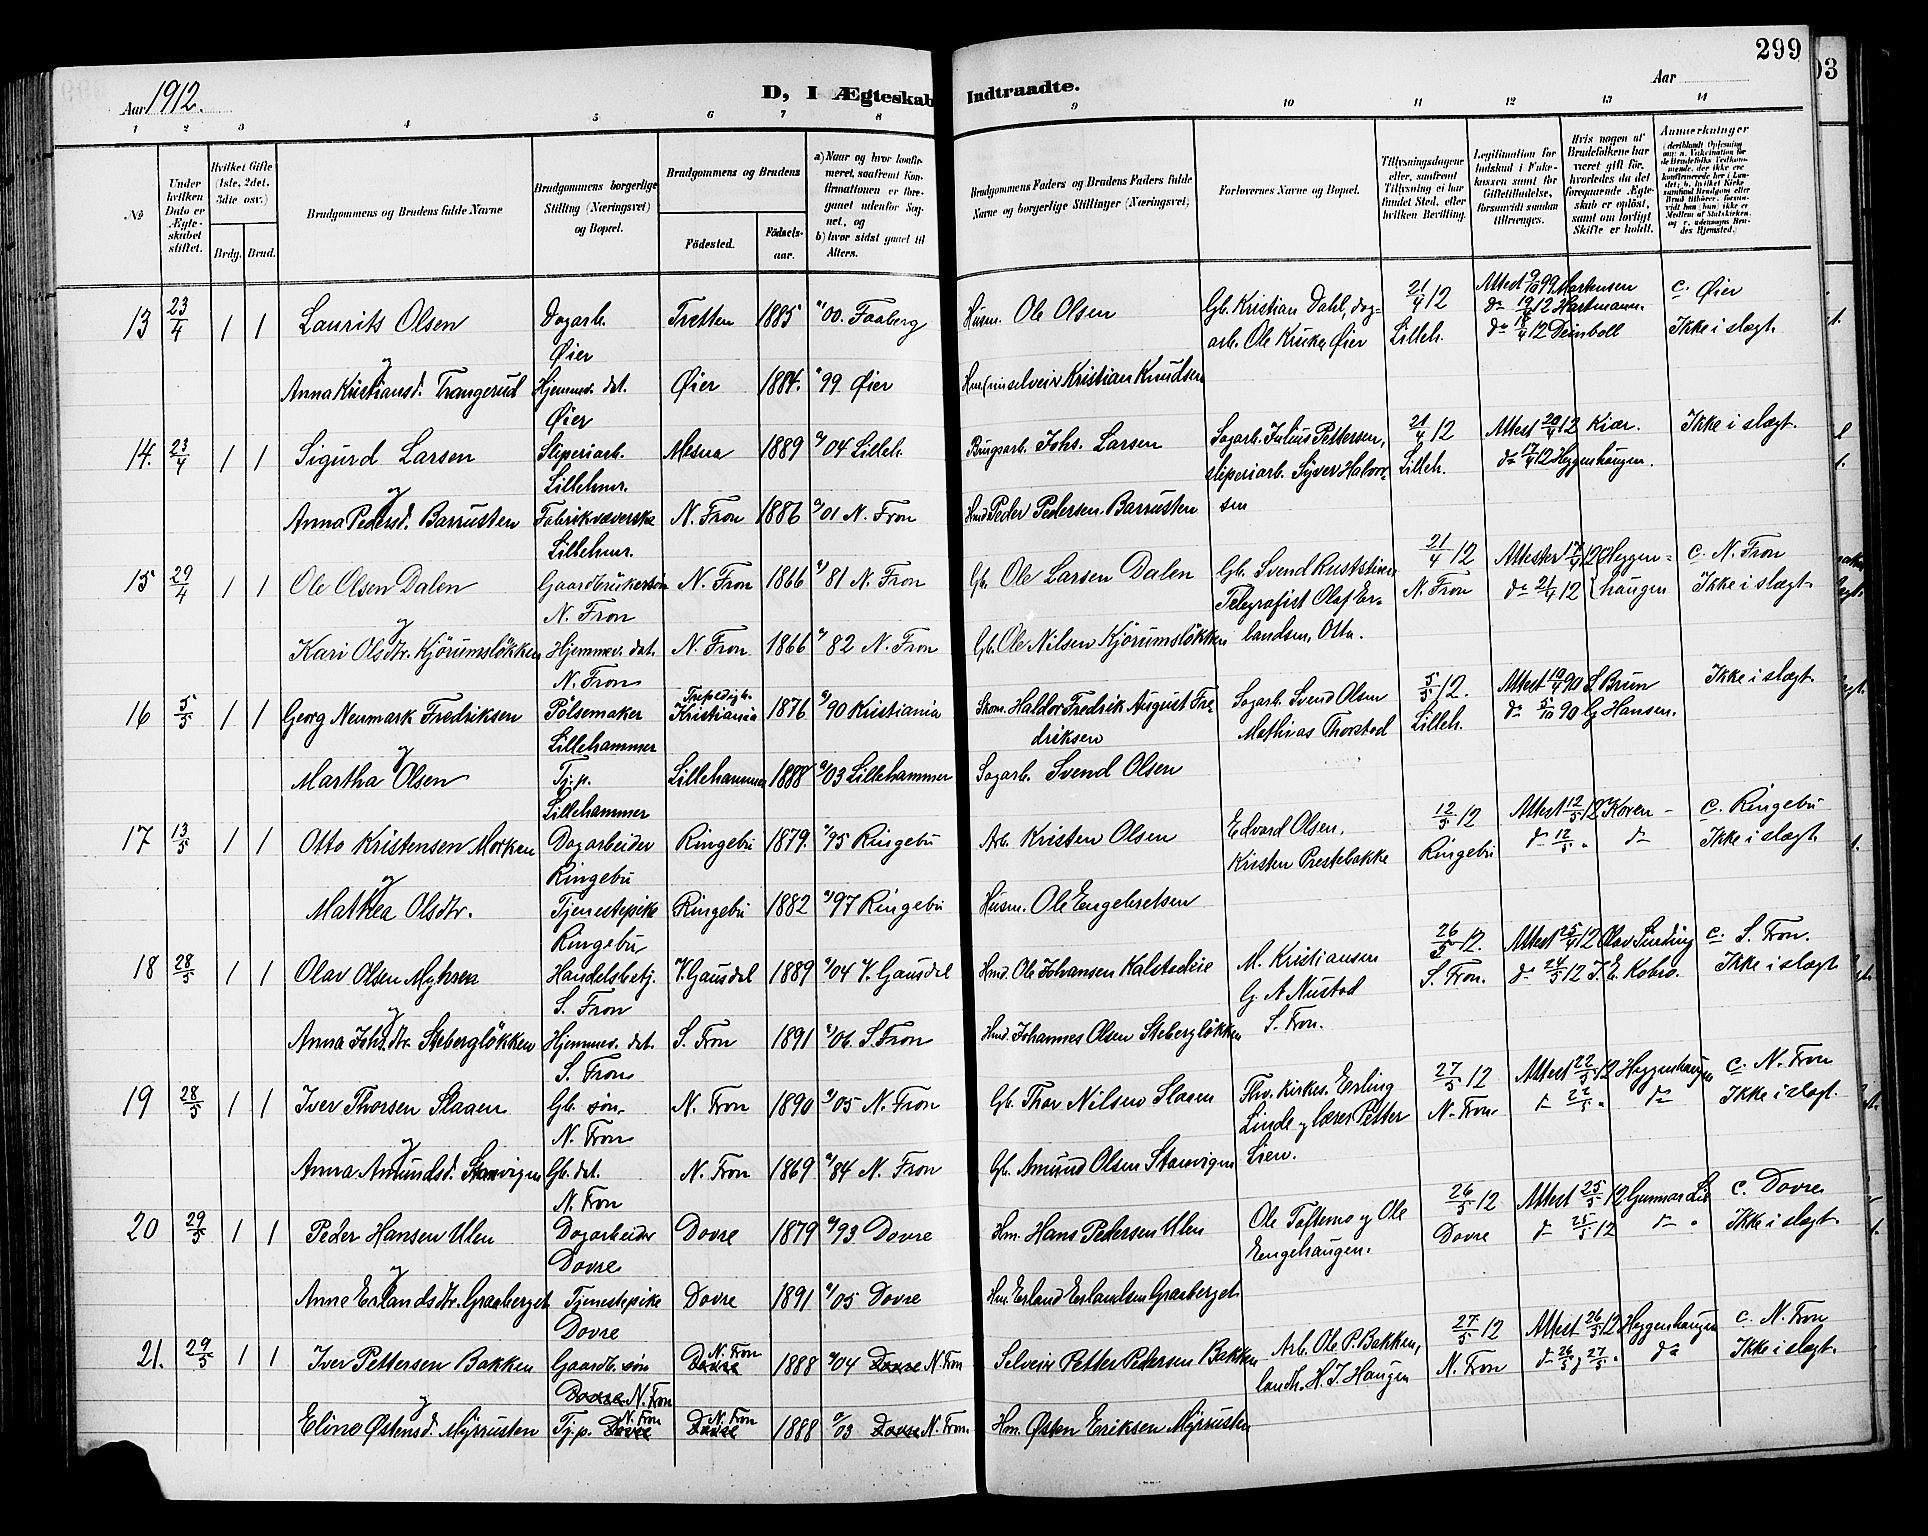 299
Aar 1912.
D, I Ægteskab Indtraadte.
Aar
1 2 3 4 5 6 7 8 9 10 11 12 13 14
No
Under hvilken Dato er Ægteskabet stiftet.
Hvilket Gifte (1ste, 2det, 3die osv.)
Brdg. Brud.
Brudgommens og Brudens fulde Navne
Brudgommens borgerlige Stilling (Næringsvei) og Bopæl.
Brudgommens og Brudens
Födested.
Födselsaar.
a) Naar og hvor konfirmeret, saafremt Konfirmationen er foregaaet udenfor Sognet, og
b) hvor sidst gaaet til Alters.
Brudgommens Faders og Brudens Faders fulde Navne og borgerlige Stillinger (Næringsvei)
Forlovernes Navne og Bopæl.
Tillysningsdagene eller, saafremt Tillysning ei har fundet Sted, efter hvilken Bevilling.
Legitimation for Indskud i Enkekassen samt for Giftetilladelse, forsaavidt saadan tiltrænges.
Hvis nogen af Brudefolkene har været gift før, hvorledes da det foregaaende Ægteskab er opløst, samt om lovligt Skifte er holdt.
Anmerkninger
13 23/4 1 1 Laurits Olsen Dagarb. Øier Tretten 1885 00. Faaberg Husm. Ole Olsen Gb. Kristian Dahl, dagarb. Ole Kruke, Øier 21/4 12 Lilleh. Attest 99 Martensen do 12 Hartmann. do 12 Deinboll c. Øier Ikke i slægt.
og
Anna Kristiansd. Trangerud Hjemmev. dat. Øier Øier 1884. 99 Øier Kristian Knudsen
14. 23/4 1 1 Sigurd Larsen Sliperiarb. Lillehmr. Mesna 1889 04 Lilleh. Brugsarb. Johs. Larsen Sagarb. Julius Pettersen, sliperiarb. Syver Halvorsen 21/4 12 Lilleh. Attest 20/4 12 Kiær. do 17/4 12 Heggenhaugen. Ikke i slægt.
og
Anna Pedersd. Barrusten Fabrikvæverske Lillehmr. N. Fron 1886 01 N. Fron Hmd Peder Pedersen Barrusten
15 29/4 1 1 Ole Olsen Dalen Gaardbrukersøn N. Fron N. Fron 1866 81 N. Fron Gb. Ole Larsen Dalen Gb. Svend Ruststuen Telegrafist Olaf Erlandsen, Otta. 21/4 12 N. Fron Attester 17/4 12 Heggenhaugen do 21/4 12 c. N. Fron Ikke i slægt.
og
Kari Olsdtr. Kjörumslökken Hjemmev. dat. N. Fron N. Fron 1866 82 N. Fron Gb. Ole Nilsen Kjörumslökken
16 5/5 1 1 Georg Neumark Fredriksen Pölsemaker Lillehammer Trefoldigh. Kristiania 1876 90 Kristiania Skom. Haldor Fredrik August Fredriksen Sagarb. Svend Olsen Mathias Thorstad 5/5 12. Lilleh. Attest 90 S. Brun do 5/10 90 G. Hansen. Ikke i slægt.
og
Martha Olsen Tj.p. Lillehammer Lillehammer 1888 03 Lillehammer Sagarb. Svend Olsen
17 13/5 1 1 Otto Kristensen Morken Dagarbeider Ringebu Ringebu 1879. 95 Ringebu Arb. Kristen Olsen Edvard Olsen, Kristen Prestebakke 12/5 12 Ringebu Attest 12/5 12 Koren do 12/5 " do c. Ringebu Ikke i slægt.
og
Mathea Olsdtr. Tjenestepike Ringebu Ringebu 1882 97 Ringebu Husm. Ole Engebretsen
18 28/5 1 1 Olav Olsen Myhren Handelsbetj. S. Fron V. Gausdal 1889 04 V. Gausdal Hmd. Ole Johansen Kalstadeie M. Kristiansen G. A Nustad S. Fron. 26/5 12. S. Fron. Attest 25/4 12 Olav Sinding do 24/5 12 J. E. Kobro. c. S. Fron. Ikke i slægt
og
Anna Johs.dtr. Stebergløkken Hjemmev. dat. S. Fron S. Fron 1891 06 S. Fron Hmd. Johannes Olsen Stebergløkken
19 28/5 1 1 Iver Thorsen Slaaen Gb. søn N. Fron N. Fron 1890 05 N. Fron Gb. Thor Nilsen Slaaen Fhv. kirkes. Erling Linde og lærer Petter Lien. 27/5 12 N. Fron. Attest 22/5 12 Heggenhaugen do 22/5 " do c. N. Fron Ikke i slægt.
og
Anna Amundsd. Stamvigen Gb. dat. N. Fron N. Fron 1869 84 N. Fron Gb. Amund Olsen Stamvigen
20 29/5 1 1 Peder Hansen Ulen Dagarbeider Dovre Dovre 1879 93 Dovre Hm. Hans Pedersen Ulen Ole Toftemo og Ole Eengehaugen. 26/5 12 Dovre Attest 25/5 12 Gunnar Lid do 25/5 12 do " c. Dovre Ikke i slægt
og
Anne Erlandsdtr. Graaberget Tjenestepike Dovre Dovre 1891 05 Dovre Hm. Erland Erlandsen Graaberget.
21. 29/5 1 1 Iver Pettersen Bakken Gaardb. søn Dovre N. Fron Dovre N. Fron 1888 04 Dovre N. Fron Selveier Petter Pedersen Bakken Arb. Ole P. Bakken, landh. H. J. Haugen 27/5 12 N. Fron Attest 26/5 12 Heggenhaugen do 26/5 og 27/5 " do c. N. Fron Ikke i slægt.
og
Eline Østensd. Myrrusten Tj.p. Dovre N. Fron Dovre N. Fron 1888 03 Dovre N. Fron Hm. Østen Eriksen Myrrusten